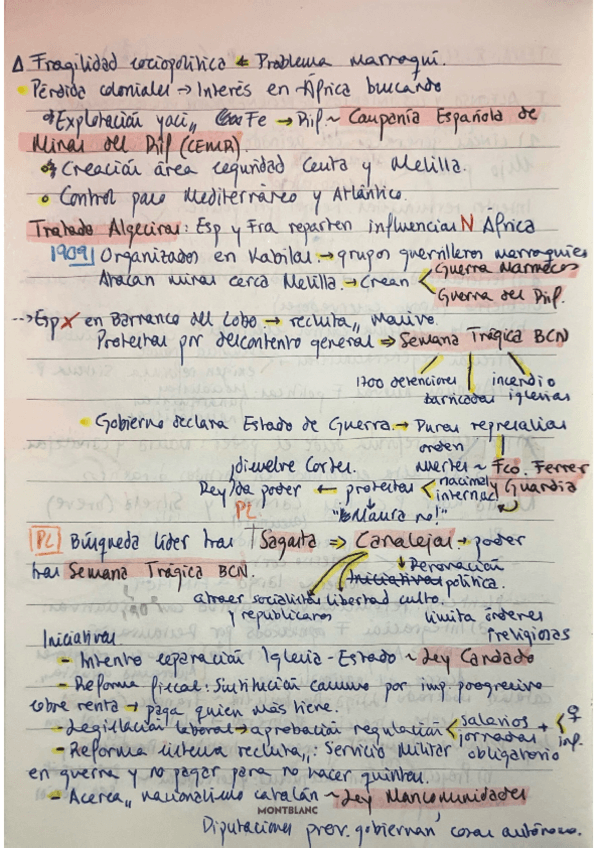 Δ Fragilidad sociopolítica ← Problema marroquí.
• Pérdida coloniales → Interés en África buscando
* Explotación yaci,, Fe → Rif ~ Compañía Española de
Minas del Rif (CEMR).
• Creación área seguridad Ceuta y Melilla.
• Control paso Mediterráneo y Atlántico.
Tratado Algeciras: Esp y Fra reparten influencias N África
1909 Organizados en Kabilas → grupos guerrilleros marroquíes
Atacan minas cerca Melilla. → Crean < Guerra Marruecos
Guerra del Rif.
--> Esp X en Barranco del Lobo. → recluta,, masivo.
Protestas por descontento general ⇒ Semana Trágica BCN
1700 detenciones barricadas incendio iglesias
• Gobierno declara Estado de Guerra. → Duras represalias
orden
muertes ~ Fco. Ferrer
y Guardia
¡disuelve Cortes.
Rey da poder ← protestas < nacional
internac.
PL "¡Maura no!"
[PL] Búsqueda líder tras † Sagasta ⇒ Canalejas → poder
tras Semana Trágica BCN
↓ Renovación
política.
atraer socialistas
y republicanos
libertad culto.
limita órdenes
religiosas
Iniciativas
- Intento separación Iglesia - Estado ~ Ley Candado
- Reforma fiscal: Sustitución consumo por imp. progresivo
sobre renta → paga quien más tiene.
- Legislación laboral → aprobación regulación < salarios
jornadas + < ♀
inf.
- Reforma sistema recluta,,: Servicio Militar obligatorio
en guerra y no pagar para no hacer quintas.
- Acerca,, nacionalismo catalán ~ Ley Mancomunidades
MONTBLANC
Diputaciones prov. gobiernan cosas autónomo.